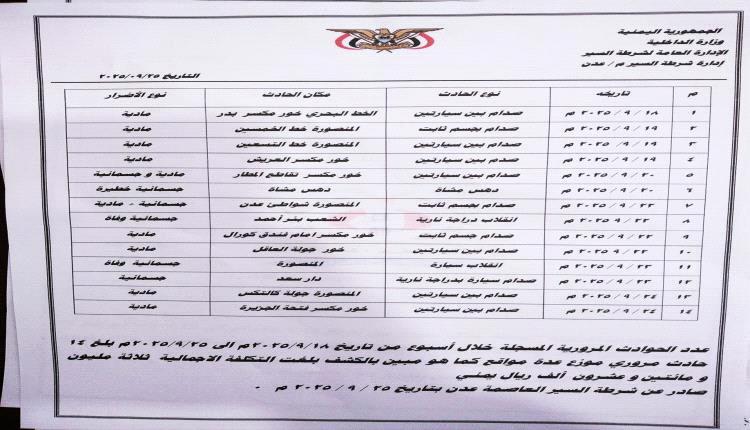 الجمهورية اليمنية
وزارة الداخلية
الإدارة العامة لشرطة السير
إدارة شرطة السير م / عدن
التاريخ ٢٠٢٥/٠٩/٢٥
م تاريخه نوع الحادث مكان الحادث نوع الأضرار
١ ١٨ / ٩ / ٢٠٢٥ م صدام بين سيارتين الخط البحري خور مكسر بدر مادية
٢ ١٩ / ٩ / ٢٠٢٥ م صدام بجسم ثابت المنصورة خط الخمسين مادية
٣ ١٩ / ٩ / ٢٠٢٥ م صدام بين سيارتين المنصورة خط التسعين مادية
٤ ١٩ / ٩ / ٢٠٢٥ م صدام بين سيارتين خور مكسر العريش مادية
٥ ٢٠ / ٩ / ٢٠٢٥ م صدام بين سيارتين خور مكسر تقاطع المطار مادية و جسمانية
٦ ٢٠ / ٩ / ٢٠٢٥ م دهس مشاة دهس مشاة جسمانية خطيرة
٧ ٢٢ / ٩ / ٢٠٢٥ م صدام بجسم ثابت المنصورة شواطئ عدن جسمانية - مادية
٨ ٢٢ / ٩ / ٢٠٢٥ م انقلاب دراجة نارية الشعب بئر أحمد جسمانية وفاة
٩ ٢٢ / ٩ / ٢٠٢٥ م صدام جسم ثابت خور مكسر امام فندق كورال مادية
١٠ ٢٣ / ٩ / ٢٠٢٥ م صدام بين سيارتين خور جولة العاقل مادية
١١ ٢٣ / ٩ / ٢٠٢٥ م انقلاب سيارة المنصورة جسمانية وفاة
١٢ ٢٣ / ٩ / ٢٠٢٥ م صدام سيارة بدراجة نارية دار سعد جسمانية
١٣ ٢٤ / ٩ / ٢٠٢٥ م صدام بين سيارتين المنصورة جولة كالتكس مادية
١٤ ٢٤ / ٩ / ٢٠٢٥ م صدام بين سيارتين خور مكسر فتحة الجزيرة مادية
عدد الحوادث المرورية المسجلة خلال أسبوع من تاريخ ٢٠٢٥/٩/١٨م الى ٢٠٢٥/٩/٢٥م بلغ ١٤
حادث مروري موزع عدة مواقع كما هو مبين بالكشف بلغت التكلفة الاجمالية ثلاثة مليون
و مائتين و عشرون ألف ريال يمني
صادر عن شرطة السير العاصمة عدن بتاريخ ٢٥ / ٩ / ٢٠٢٥ م .